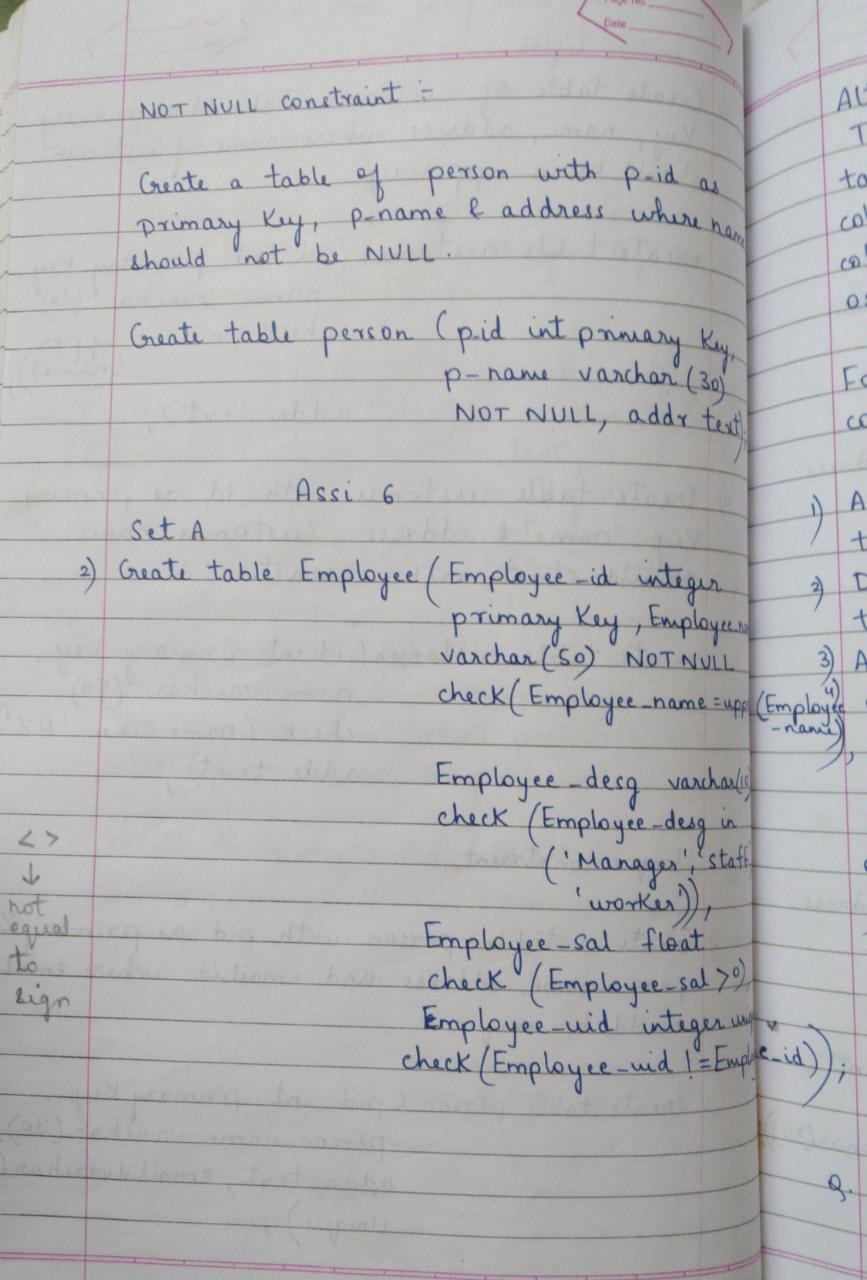 Date
NOT NULL constraint :-
Create a table of person with p-id as
primary key, p-name & address where name
should not be NULL.
Create table person (p-id int primary key,
p-name varchar(30)
NOT NULL, addr text);
Assi 6
Set A
2) Create table Employee (Employee-id integer
primary key, Employee
varchar(50) NOT NULL
check(Employee_name = upp (Employee
-name)),
Employee-desg varchar(10)
check (Employee-desg in
('Manager', 'staff
'worker')),
Employee-sal float
check (Employee-sal >0),
Employee-uid integer
check(Employee-uid != Emp e-id));
< >
↓
not
equal
to
sign
AL
T
ta
col
col
Ea
co
1) A
t
2) D
t
3) A
4)
Q.